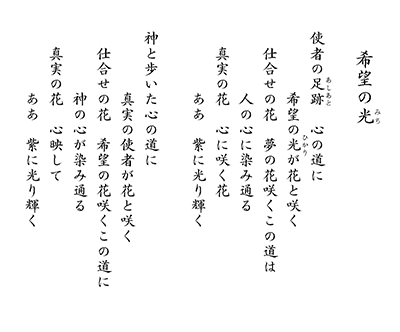 希望の光
みち
使者の足跡　心の道に
あしあと
希望の光が花と咲く
ひかり
仕合せの花　夢の花咲くこの道は
人の心に染み通る
真実の花　心に咲く花
ああ　紫に光り輝く
神と歩いた心の道に
真実の使者が花と咲く
仕合せの花　希望の花咲くこの道に
神の心が染み通る
真実の花　心映して
ああ　紫に光り輝く